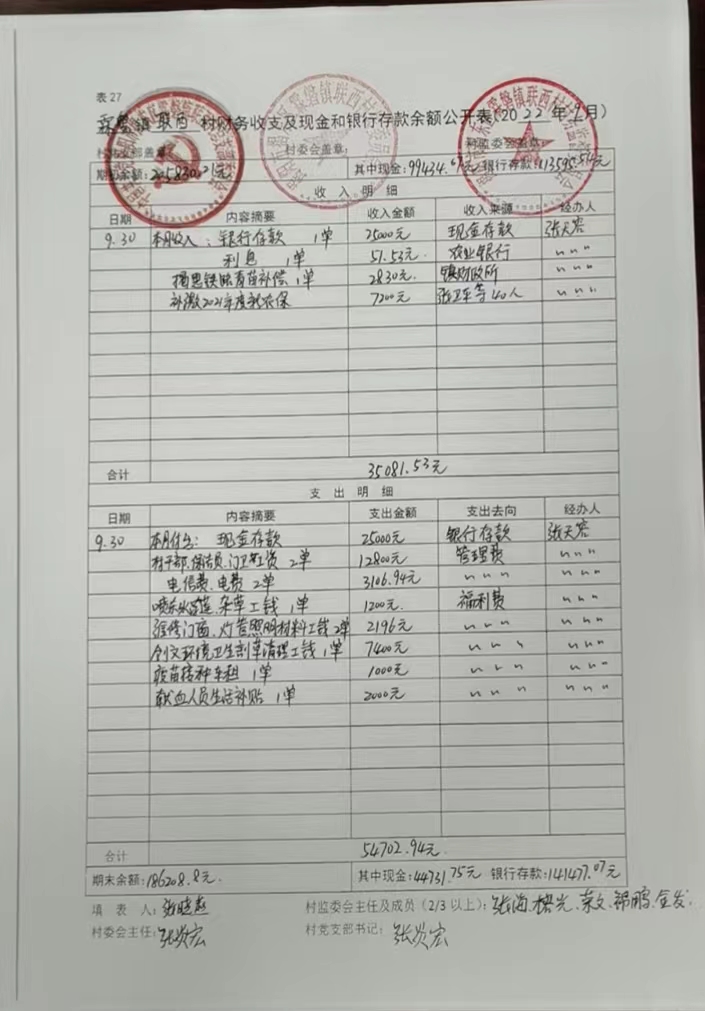 表 27
霖磐镇 联西 村财务收支及现金和银行存款余额公开表(2022年9月)
村委会盖章: 村监委会盖章:
期初余额:205830.21元 其中现金:99434.57元 银行存款:113595.54元
收 入 明 细
日期 内容摘要 收入金额 收入来源 经办人
9.30 本月收入:银行存款 1单 25000元 现金存款 张天容
利息 1单 51.53元 农业银行 〃 〃 〃
揭惠铁路青苗补偿 1单 2830元 镇财政所 〃 〃 〃
补缴2021年度新农保 7200元 张卫车等40人 〃 〃 〃
合计 35081.53元
支 出 明 细
日期 内容摘要 支出金额 支出去向 经办人
9.30 本月付出:现金存款 25000元 银行存款 张天容
村干部、保洁员、门卫工资 2单 12800元 管理费 〃 〃 〃
电信费、电费 2单 3106.94元 〃 〃 〃 〃 〃 〃
喷杀水浮莲、杂草工钱 1单 1200元 福利费 〃 〃 〃
维修门窗、灯管照明材料工钱 2单 2196元 〃 〃 〃 〃 〃 〃
创文环境卫生割草清理工钱 1单 7400元 〃 〃 〃 〃 〃 〃
疫苗接种车租 1单 1000元 〃 〃 〃 〃 〃 〃
献血人员生活补贴 1单 2000元 〃 〃 〃 〃 〃 〃
合计 54702.94元
期末余额:186208.8元 其中现金:44731.75元 银行存款:141477.07元
填 表 人: 村监委会主任及成员(2/3 以上):
村委会主任: 张炎宏 村党支部书记: 张炎宏